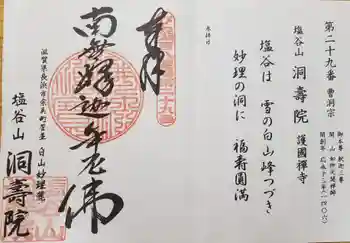 第二十九番 曹洞宗
塩谷山 洞壽院 護國禅寺
御本尊 釈迦三尊
開山 如仲天誾禅師
開創年 応永十三年(一四〇六)
奉拝日
塩谷は 雪の白山峰つづき
妙理の洞に 福壽圓満
奉拝
南無釋迦牟尼佛
白山妙理
滋賀県長浜市余呉町菅並
塩谷山 洞壽院